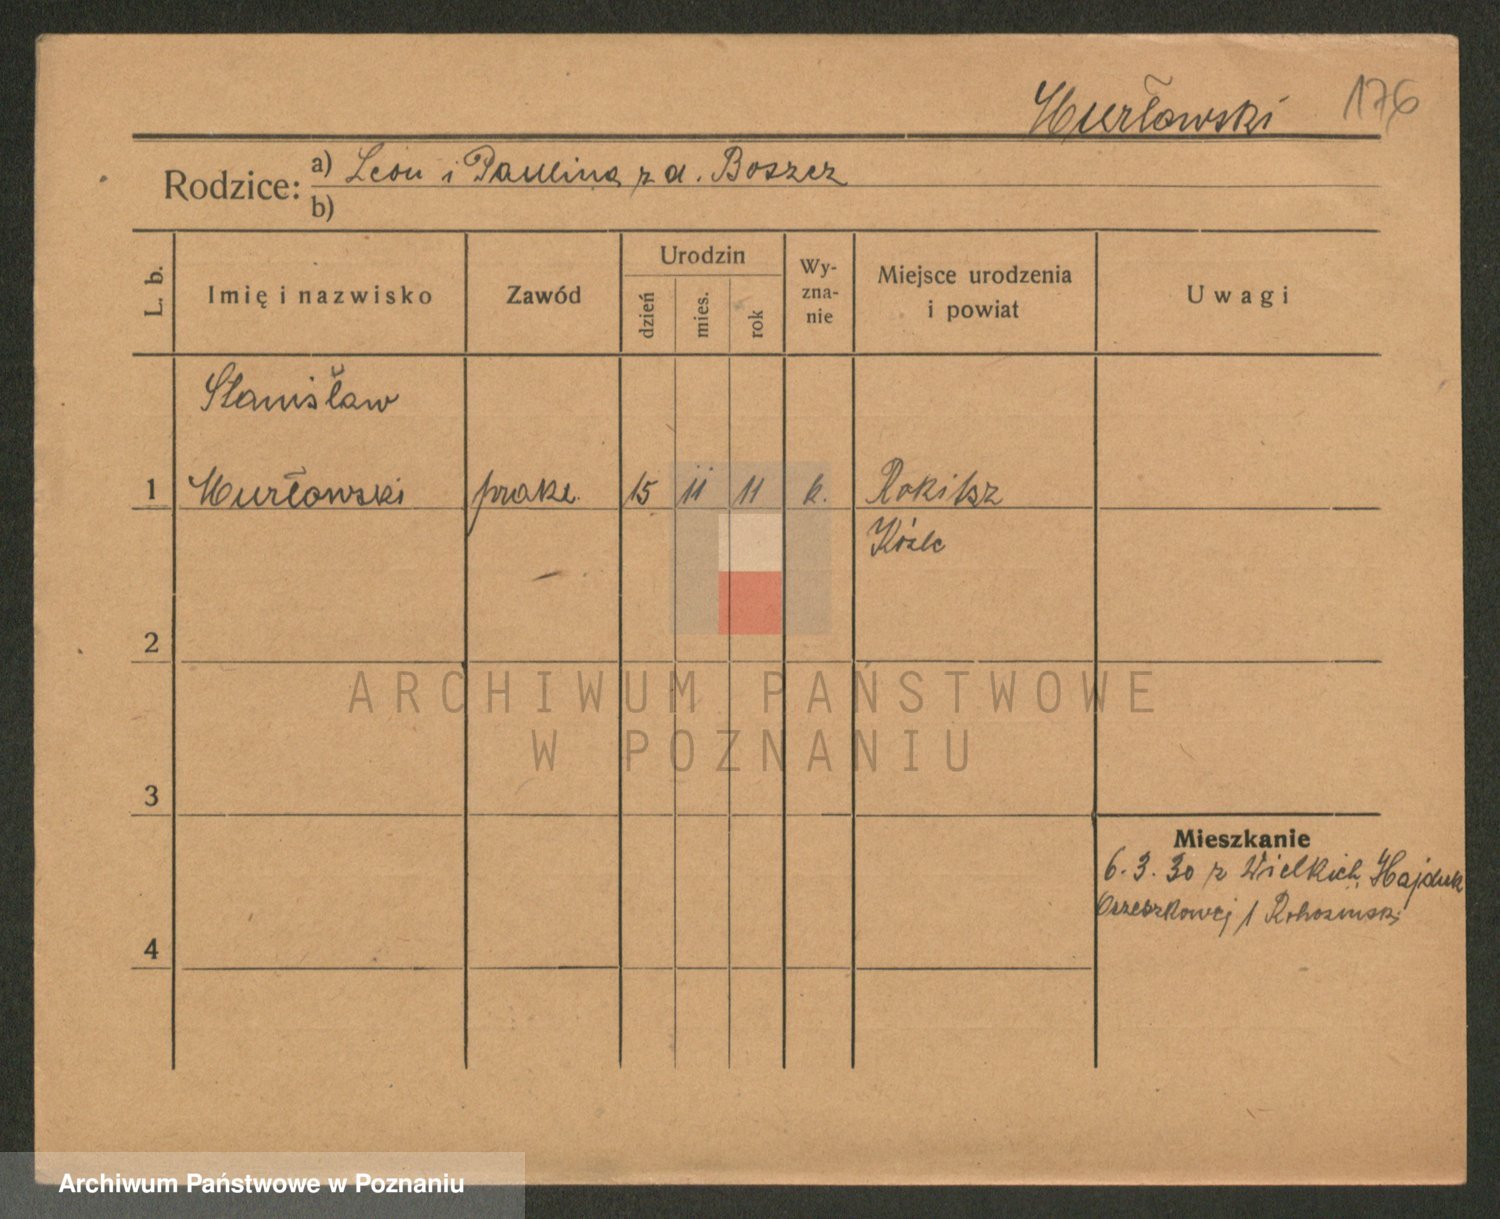 Hurłowski 176
Rodzice: a) Leon i Paulina z d. Boszcz
b)
L. b. Imię i nazwisko Zawód Urodzin dzień mies. rok Wy-zna-nie Miejsce urodzenia i powiat Uwagi
Stanisław
1 Hurłowski prakt. 15 11 11 k.
Koźle
2
ARCHIWUM PAŃSTWOWE
W POZNANIU
3
Mieszkanie
6.3.30 z Wielkich Hajduk
Orzeszkowej 1
4
Archiwum Państwowe w Poznaniu